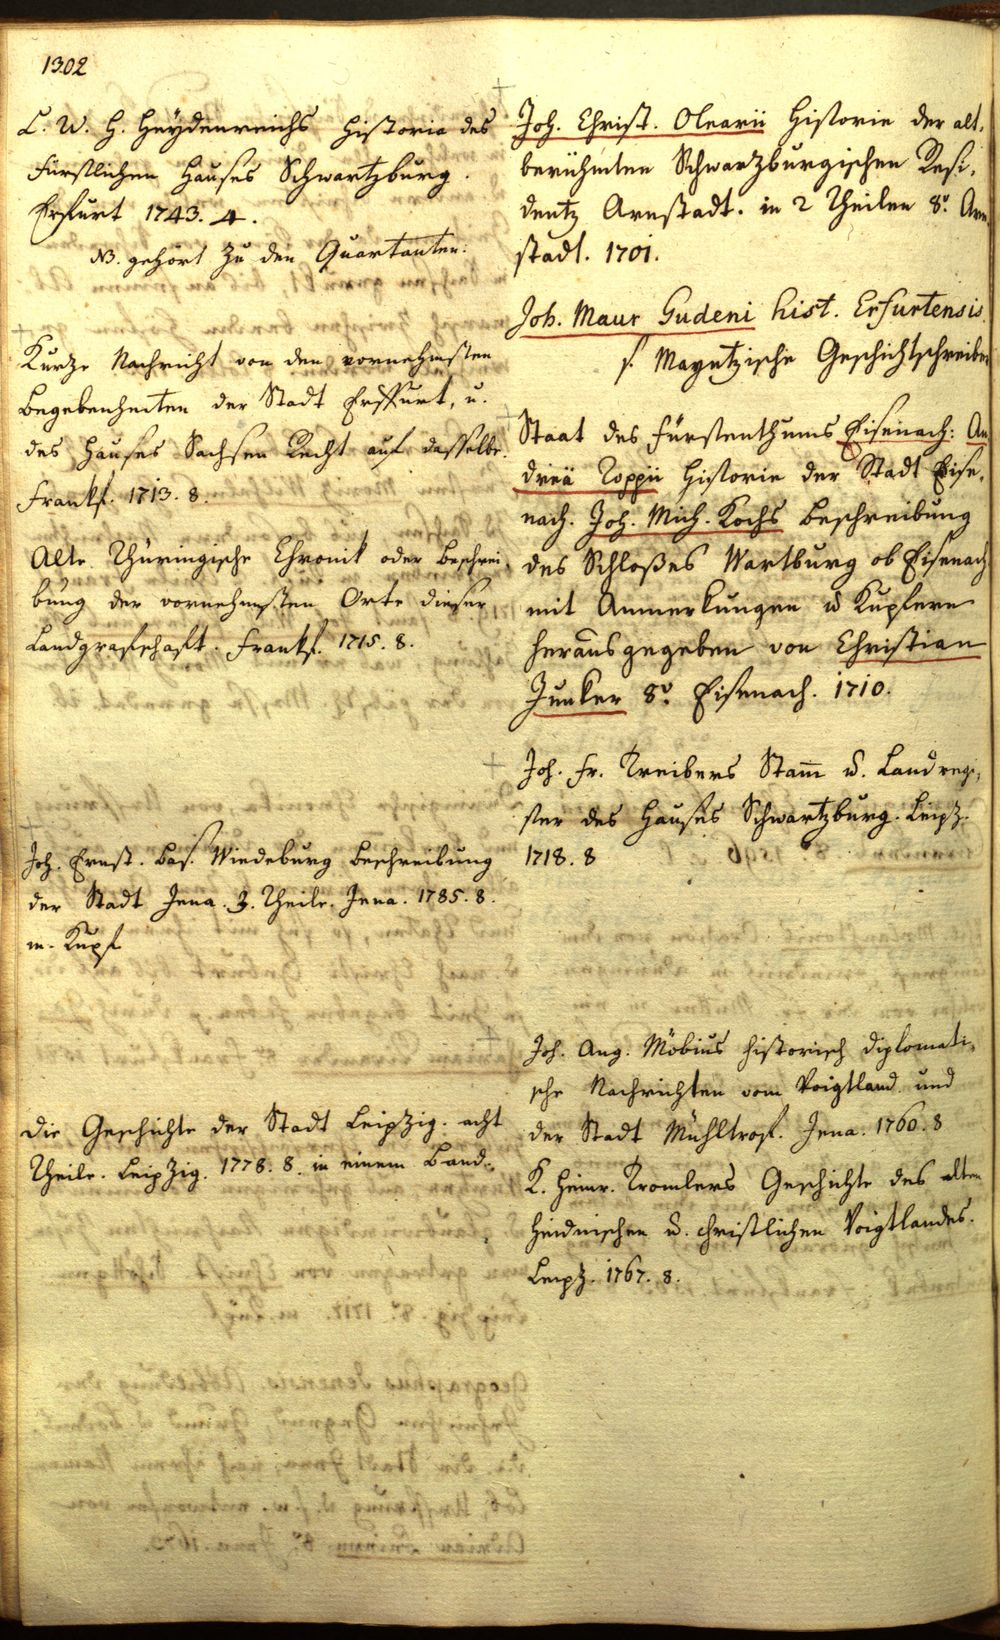 1302
L. W. H. Heydenreichs Historia des
Fürstlichen Hauses Schwartzburg.
Erfurt 1743. 4.
NB. gehört zu den Quartanten.
Kurtze Nachricht von den vornehmsten
Begebenheiten der Stadt Erffurt, u.
des Hauses Sachsen Recht auf dasselbe.
Frankf. 1713. 8.
Alte Thüringische Chronik oder Beschrei-
bung der vornehmsten Orte dieser
Landgrafschaft. Frankf. 1715. 8.
Joh. Ernst. Bas. Wiedeburg Beschreibung
der Stadt Jena. 3. Theile. Jena. 1785. 8.
m. Kupf
Die Geschichte der Stadt Leipzig. acht
Theile. Leipzig. 1778. 8. in einem Band.
Joh. Christ. Olearii Historie der alt-
berühmten Schwarzburgischen Resi-
dentz Arnstadt. in 2 Theilen 8º. Arn-
stadt. 1701.
Joh. Maur Gudeni hist. Erfurtensis.
s. Mayntzische Geschichtschreiber
Staat des Fürstenthums Eisenach: An-
dreä Toppii Historie der Stadt Eise-
nach. Joh. Mich. Kochs Beschreibung
des Schloßes Wartburg ob Eisenach
mit Anmerkungen u Kupfern
herausgegeben von Christian
Junker 8º. Eisenach. 1710.
Joh. Fr. Treibers Stam̄ u. Landregi-
ster des Hauses Schwartzburg. Leipz.
1718. 8
Joh. Aug. Möbius historisch diplomati-
sche Nachrichten vom Voigtland und
der Stadt Mühltrof. Jena. 1760. 8
K. Heinr. Tromlers Geschichte des alten
heidnischen u. christlichen Voigtlandes.
Leipz. 1767. 8.